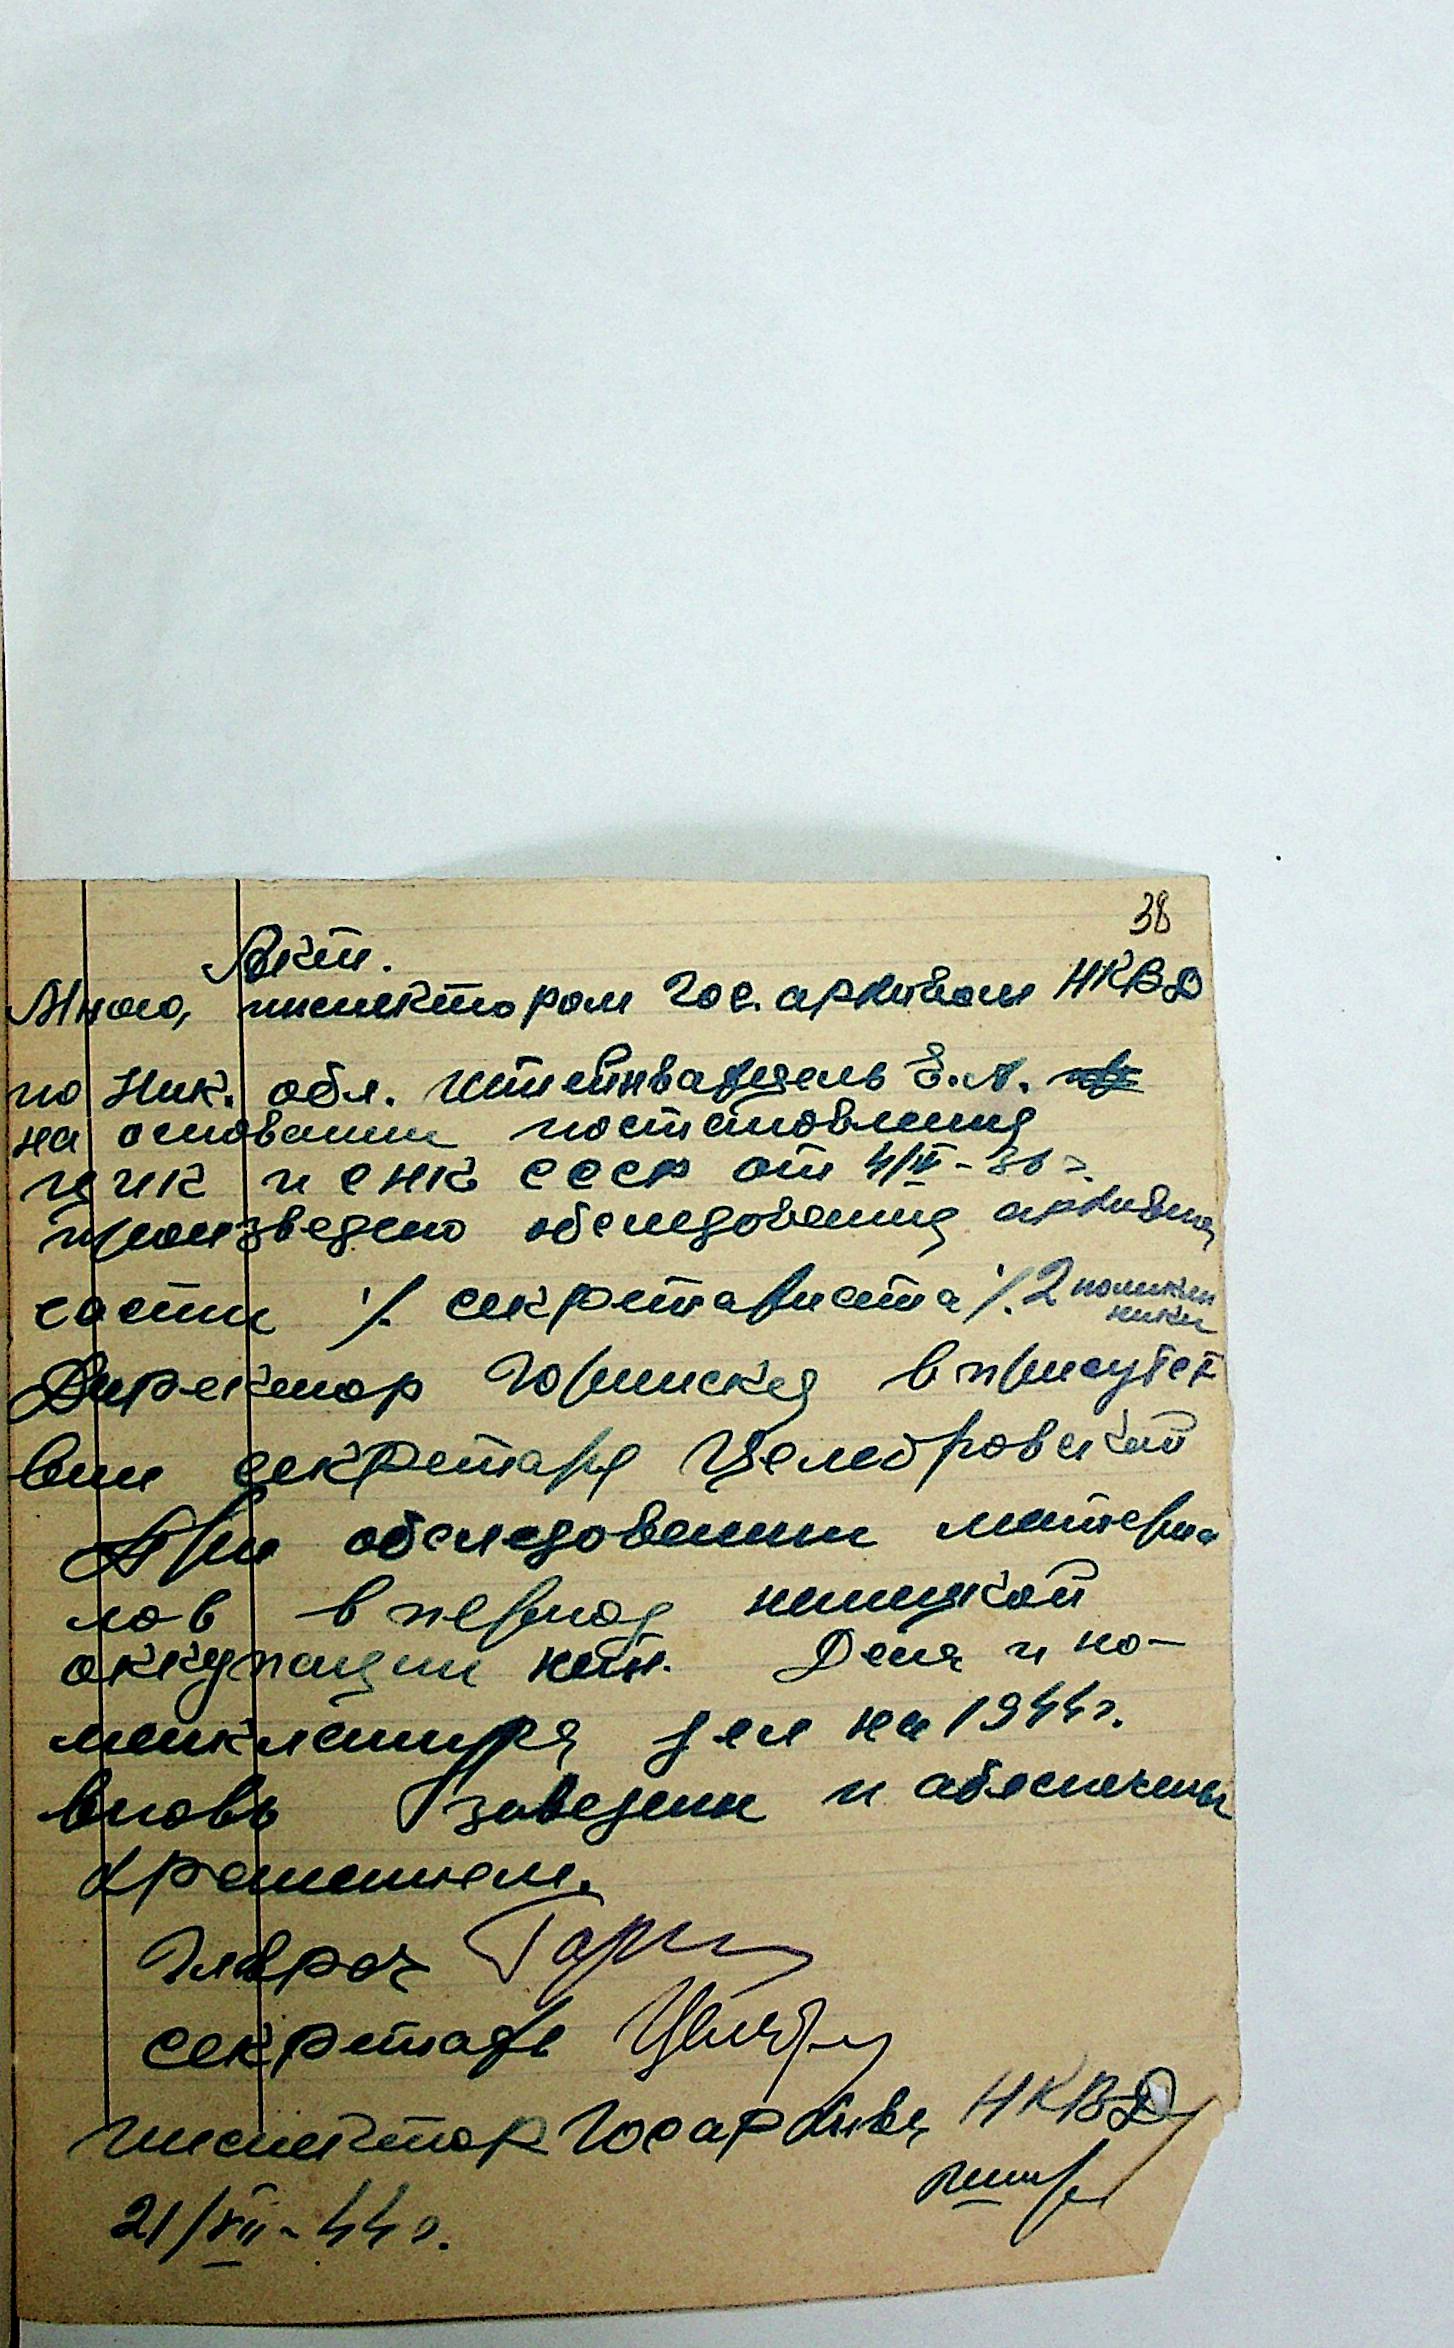 38
Акт.
Мною, инспектором Гос. архивом НКВД
по Ник. обл. Штейнвандель Е.А.
на основании постановления
ЦИК и СНК СССР от 4/II-36 г.
произведено обследования архивной
части секретариата 2 поликли
ники
Директор в присутст
вии секретаря
При обследовании материа
лов в период немецкой
оккупации нет. Дела и но-
менклатура дел на 1944 г.
вновь заведены и обеспечены
хранением.
Главрач
секретарь
инспектор Госархива НКВД
21/VII-44 г.